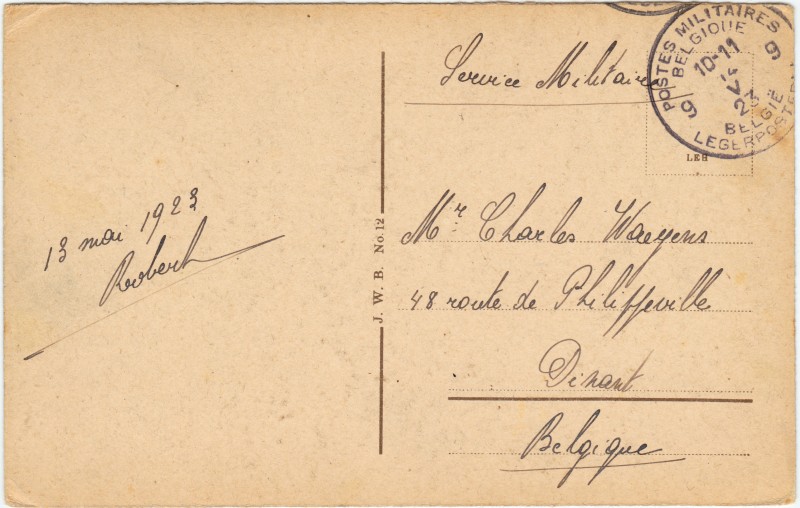 13 mai 1923
Robert
J. W. B. No. 12
Service Militaire
POSTES MILITAIRES
BELGIQUE
10-11
V
23
BELGIË
LEGERPOSTERIJ
9 9
LEH
Mr Charles Waeyens
48 route de Philippeville
Dinant
Belgique